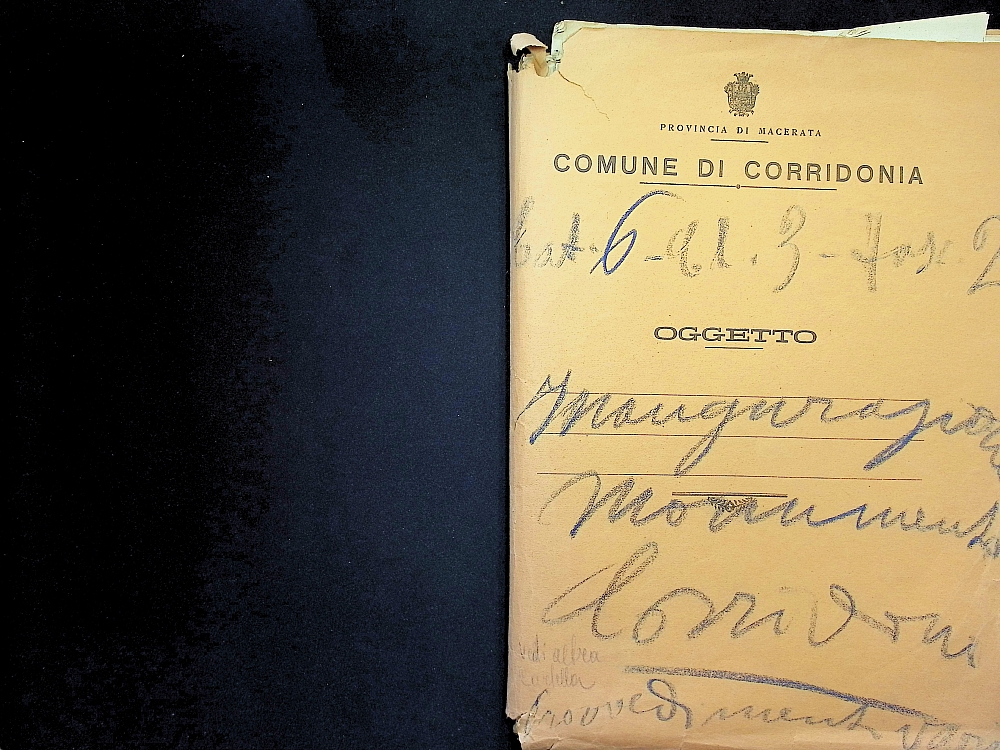 PROVINCIA DI MACERATA
COMUNE DI CORRIDONIA
Cat. 6 - Cl. 3 - Fasc. 2
OGGETTO
Inaugurazione
Monumento
Corridoni
vedi altra
cartella
Provvedimenti vari